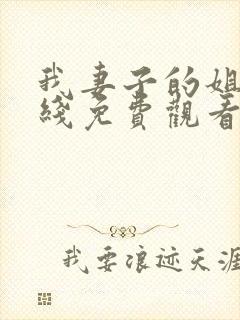 我妻子的姐
綫免費觀看
我要浪迹天涯